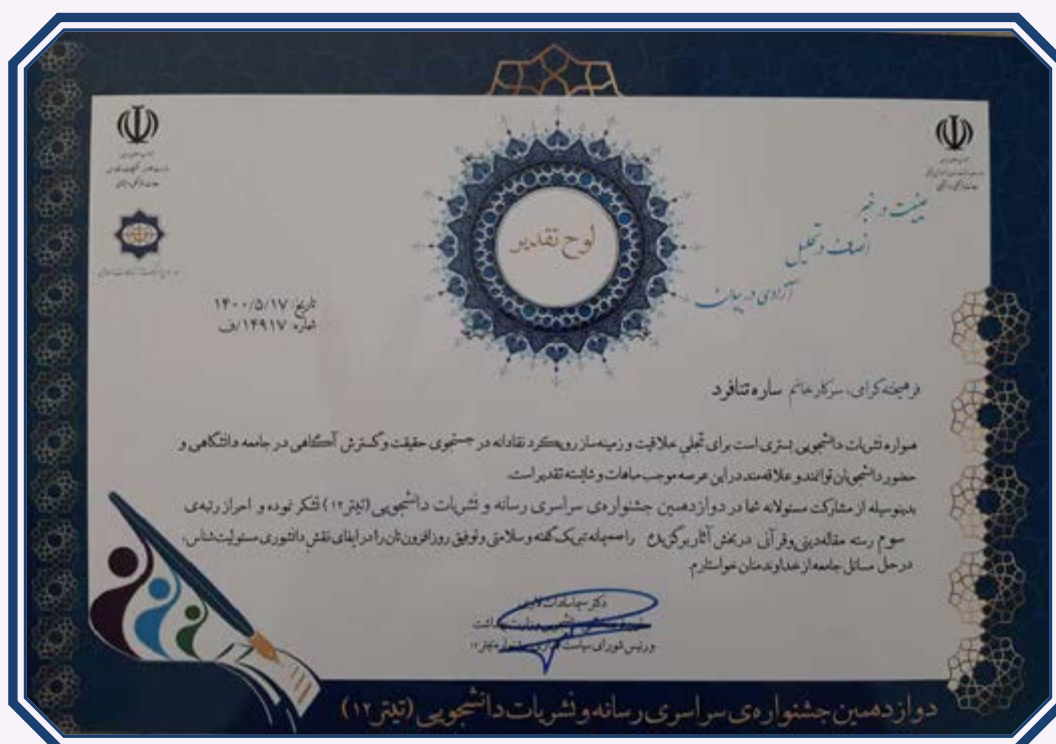 جمهوری اسلامی ایران
عینیت در خبر
انصاف در تحلیل
آزادی در بیان
لوح تقدیر
تاریخ: ۱۴۰۰/۵/۱۷
شماره: ۱۴۹۱۷/ف
فرهیخته گرامی، سرکار خانم ساره تنافرد
همواره نشریات دانشجویی بستری است برای تجلی خلاقیت و زمینه‌ساز رویکرد نقادانه در جستجوی حقیقت و گسترش آگاهی در جامعه دانشگاهی و
حضور دانشجویان توانمند و علاقه‌مند در این عرصه موجب مباهات و شایسته تقدیر است.
بدینوسیله از مشارکت مسئولانه شما در دوازدهمین جشنواره‌ی سراسری رسانه و نشریات دانشجویی (تیتر ۱۲) تشکر نموده و احراز رتبه‌ی
سوم رسته مقاله دینی و قرآنی در بخش آثار برگزیده را صمیمانه تبریک گفته و سلامتی و توفیق روزافزون‌تان را در ایفای نقش دانشوری مسئولیت‌شناس،
در حل مسائل جامعه از خداوند منان خواستارم.
دکتر سیما سادات لاری
و رئیس شورای سیاست گذاری جشنواره تیتر ۱۲
دوازدهمین جشنواره‌ی سراسری رسانه و نشریات دانشجویی (تیتر ۱۲)